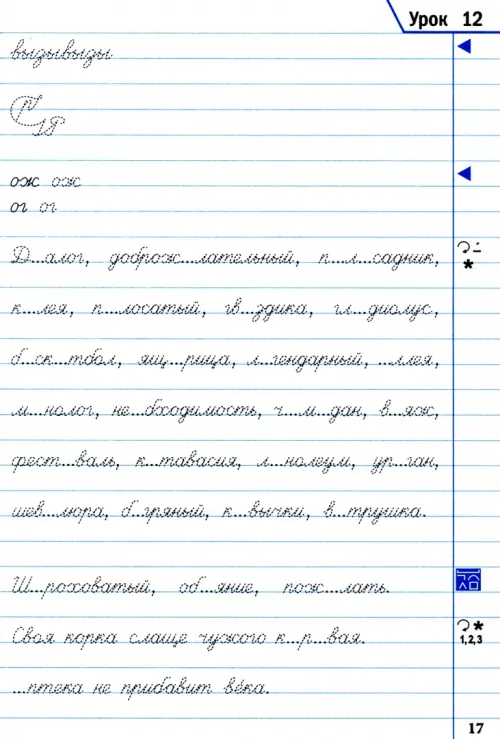 Урок 12
вызывызы
ож ож
ог ог
Д...алог, доброж...лательный, п...л...садник,
к...лея, п...лосатый, гв...здика, гл...диолус,
б...ск...тбол, ящ...рица, л...гендарный, ...ллея,
м...нолог, не...бходимость, ч...м...дан, в...яж,
фест...валь, к...тавасия, л...нолеум, ур...ган,
шев...люра, б...гряный, к...вычки, в...трушка.
Ш...роховатый, об...яние, пож...лать.
Своя корка слаще чужого к...р...вая.
1,2,3
...птека не прибавит ве́ка.
17